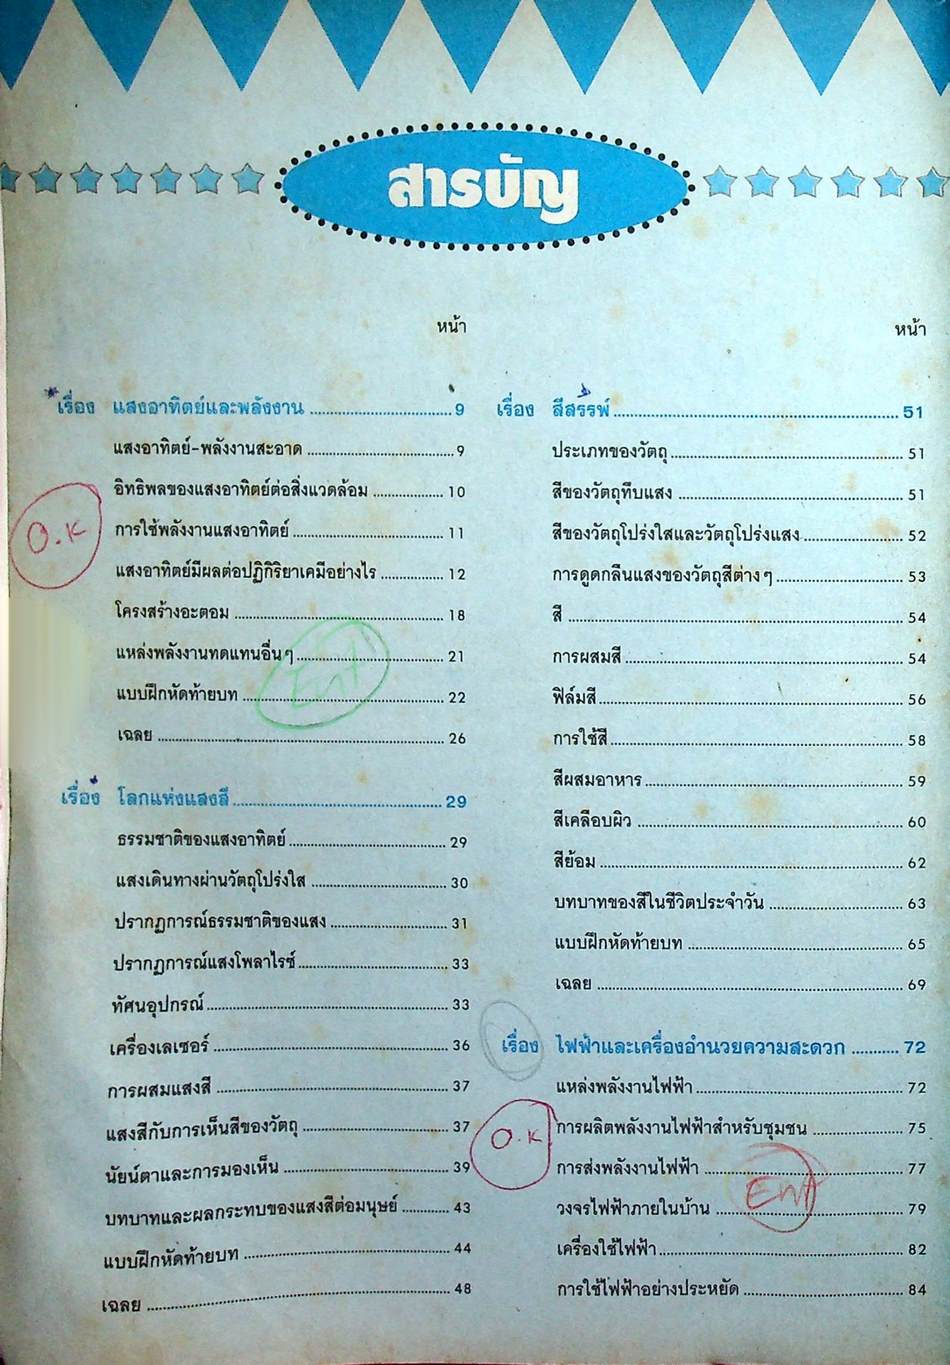 สารบัญ
หน้า
เรื่อง แสงอาทิตย์และพลังงาน ........ 9
แสงอาทิตย์-พลังงานสะอาด ........ 9
อิทธิพลของแสงอาทิตย์ต่อสิ่งแวดล้อม ........ 10
O.K
การใช้พลังงานแสงอาทิตย์ ........ 11
แสงอาทิตย์มีผลต่อปฏิกิริยาเคมีอย่างไร ........ 12
โครงสร้างอะตอม ........ 18
แหล่งพลังงานทดแทนอื่นๆ ........ 21
Ent
แบบฝึกหัดท้ายบท ........ 22
เฉลย ........ 26
เรื่อง โลกแห่งแสงสี ........ 29
ธรรมชาติของแสงอาทิตย์ ........ 29
แสงเดินทางผ่านวัตถุโปร่งใส ........ 30
ปรากฏการณ์ธรรมชาติของแสง ........ 31
ปรากฏการณ์แสงโพลาไรซ์ ........ 33
ทัศนอุปกรณ์ ........ 33
เครื่องเลเซอร์ ........ 36
การผสมแสงสี ........ 37
แสงสีกับการเห็นสีของวัตถุ ........ 37
นัยน์ตาและการมองเห็น ........ 39
บทบาทและผลกระทบของแสงสีต่อมนุษย์ ........ 43
แบบฝึกหัดท้ายบท ........ 44
เฉลย ........ 48
หน้า
เรื่อง สีสรรพ์ ........ 51
ประเภทของวัตถุ ........ 51
สีของวัตถุทึบแสง ........ 51
สีของวัตถุโปร่งใสและวัตถุโปร่งแสง ........ 52
การดูดกลืนแสงของวัตถุสีต่างๆ ........ 53
สี ........ 54
การผสมสี ........ 54
ฟิล์มสี ........ 56
การใช้สี ........ 58
สีผสมอาหาร ........ 59
สีเคลือบผิว ........ 60
สีย้อม ........ 62
บทบาทของสีในชีวิตประจำวัน ........ 63
แบบฝึกหัดท้ายบท ........ 65
เฉลย ........ 69
เรื่อง ไฟฟ้าและเครื่องอำนวยความสะดวก ........ 72
แหล่งพลังงานไฟฟ้า ........ 72
การผลิตพลังงานไฟฟ้าสำหรับชุมชน ........ 75
O.K
การส่งพลังงานไฟฟ้า ........ 77
Ent
วงจรไฟฟ้าภายในบ้าน ........ 79
เครื่องใช้ไฟฟ้า ........ 82
การใช้ไฟฟ้าอย่างประหยัด ........ 84